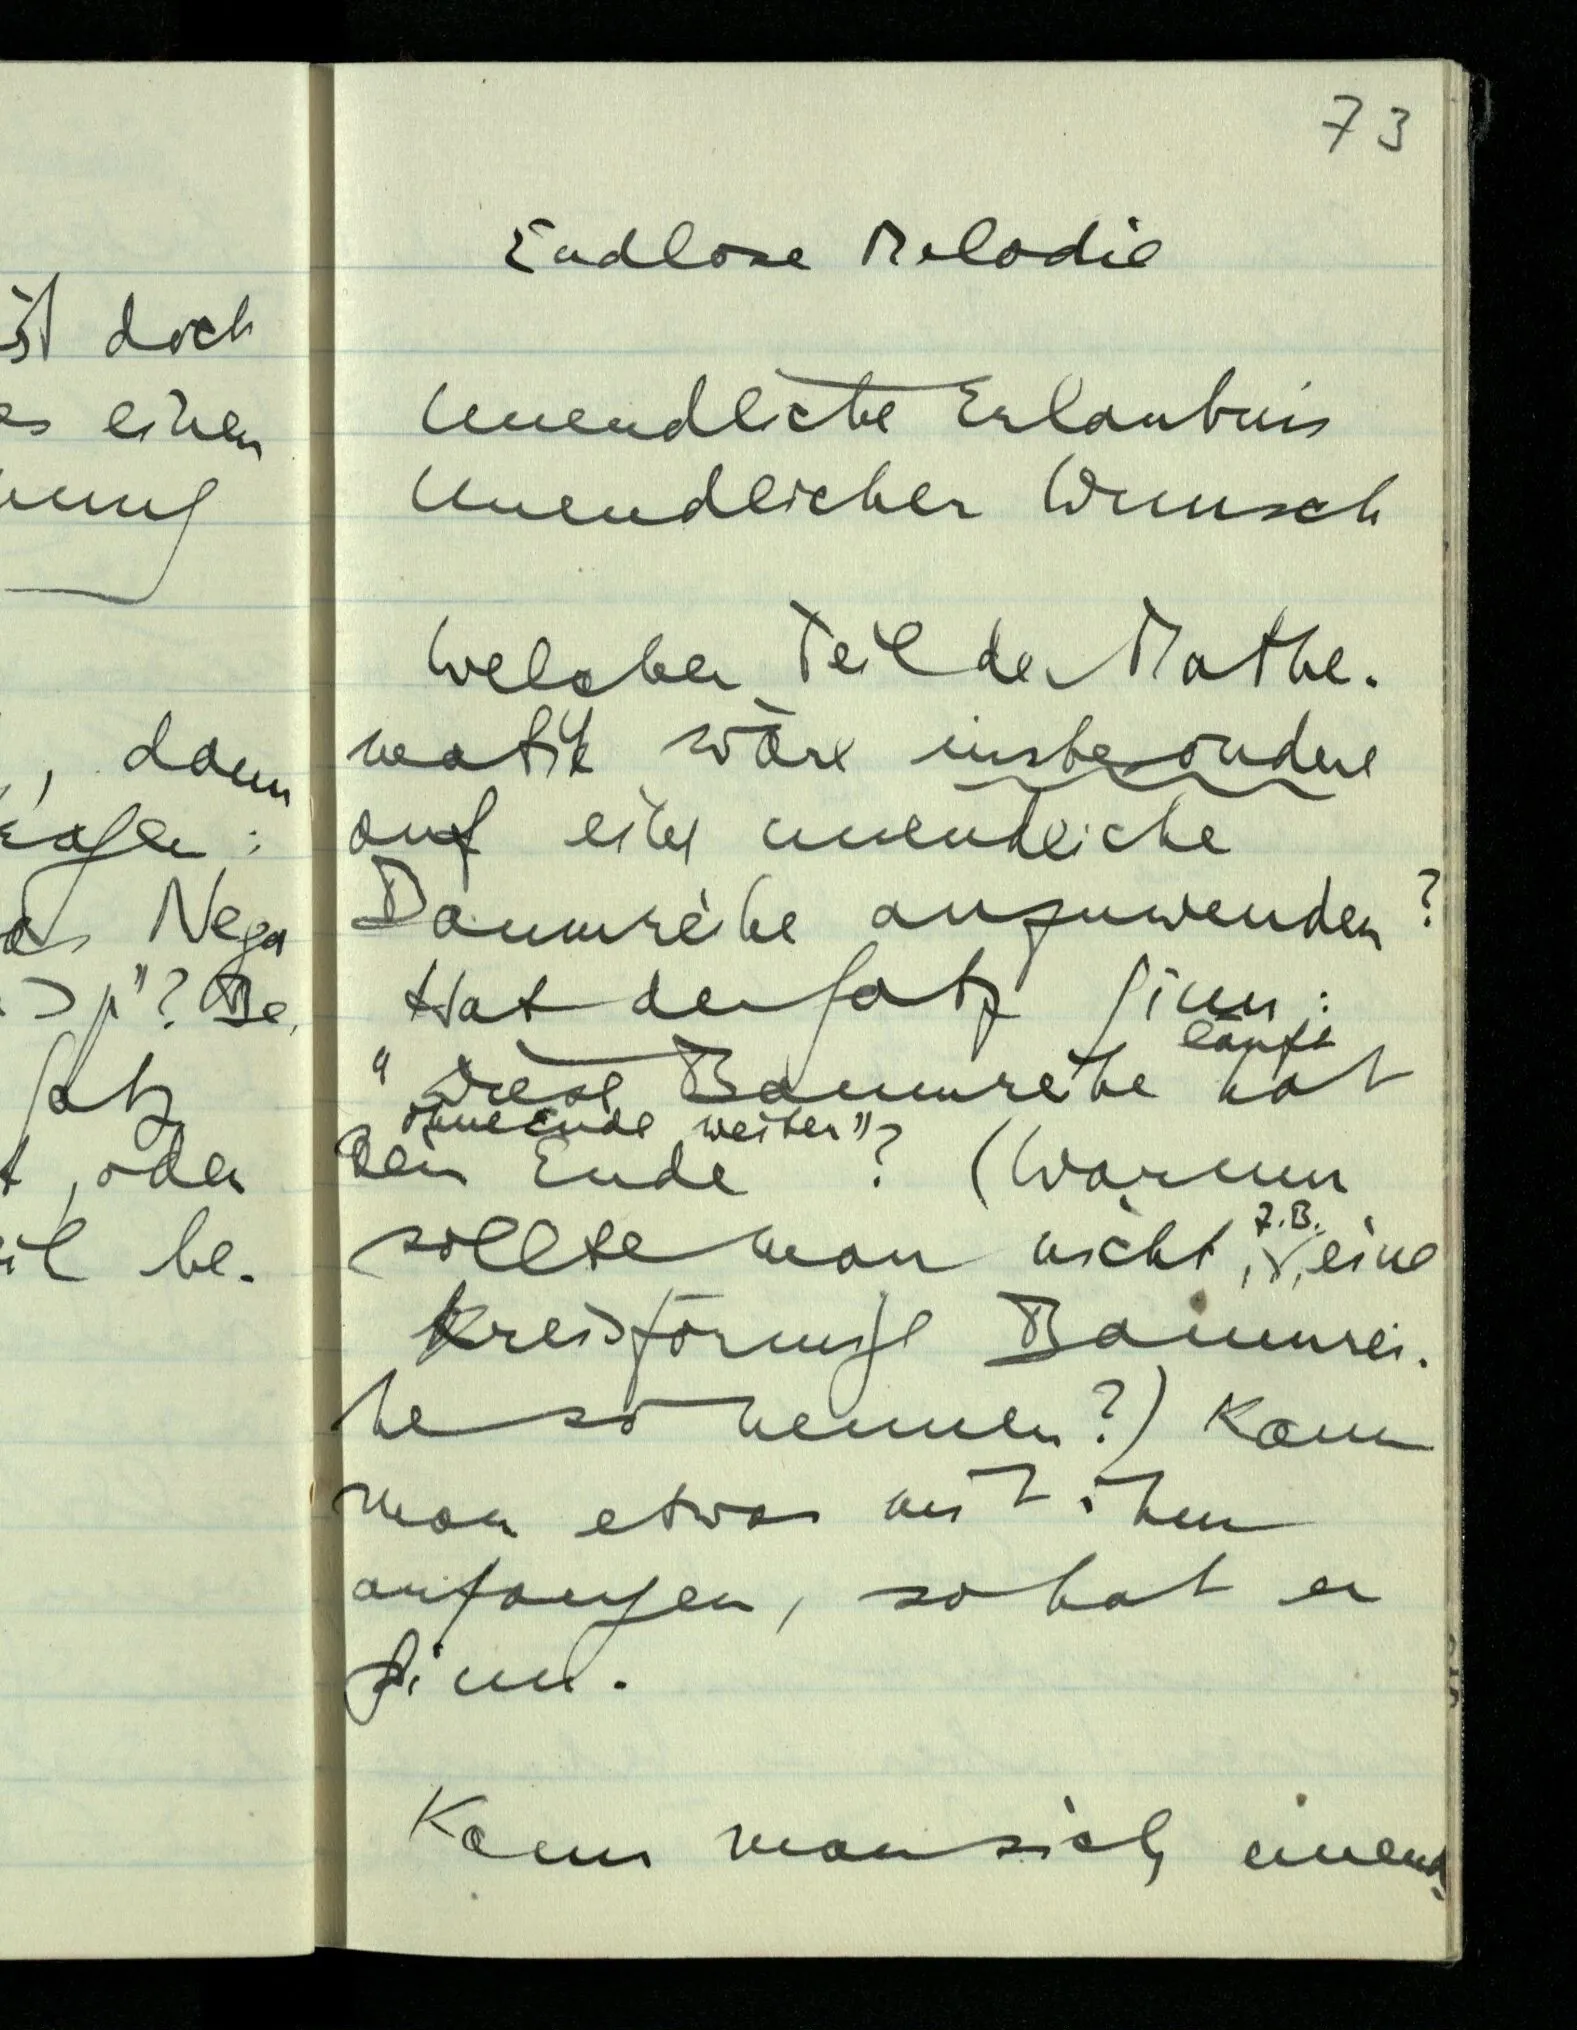 73
Endlose Melodie
Unendliche Erlaubnis
Unendlicher Wunsch
Welcher Teil der Mathe-
matik wäre insbesondere
auf eine unendliche
Baumreihe anzuwenden?
Hat der Satz Sinn:
läuft
"Diese Baumreihe hat
ohne Ende weiter"?
kein Ende ? (Warum
z.B.
sollte man nicht, eine
kreisförmige Baumrei-
he so nennen?) Kann
man etwas mit ihm
anfangen, so hat er
Sinn.
Kann man sich unend-
ist doch
es einen
nung
, dann
sagen:
das Nega
⊃ p"? Be
Satz
t, oder
eil be-